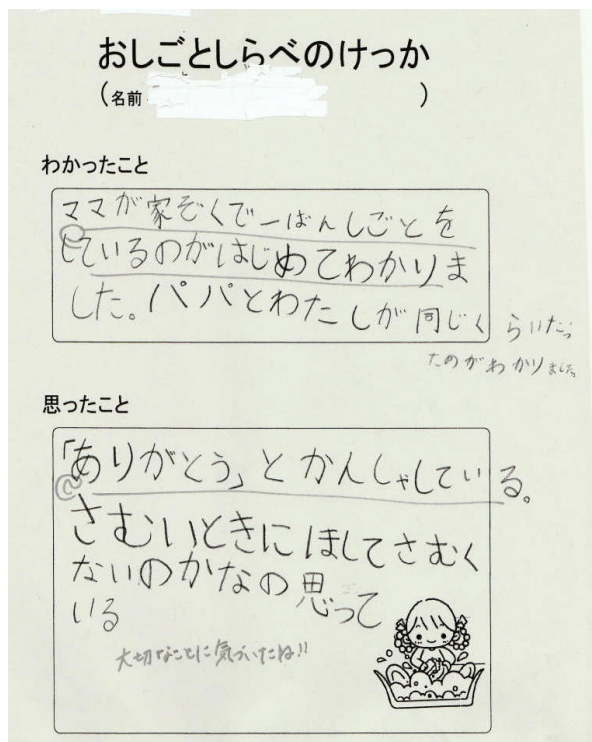 おしごとしらべのけっか
(名前 )
わかったこと
ママが家ぞくで一ばんしごとを
しているのがはじめてわかりま
した。パパとわたしが同じくらいだっ
たのがわかりました。
思ったこと
「ありがとう」とかんしゃしている。
さむいときにほしてさむく
ないのかなの思って
いる
大切なことに気づいたね!!